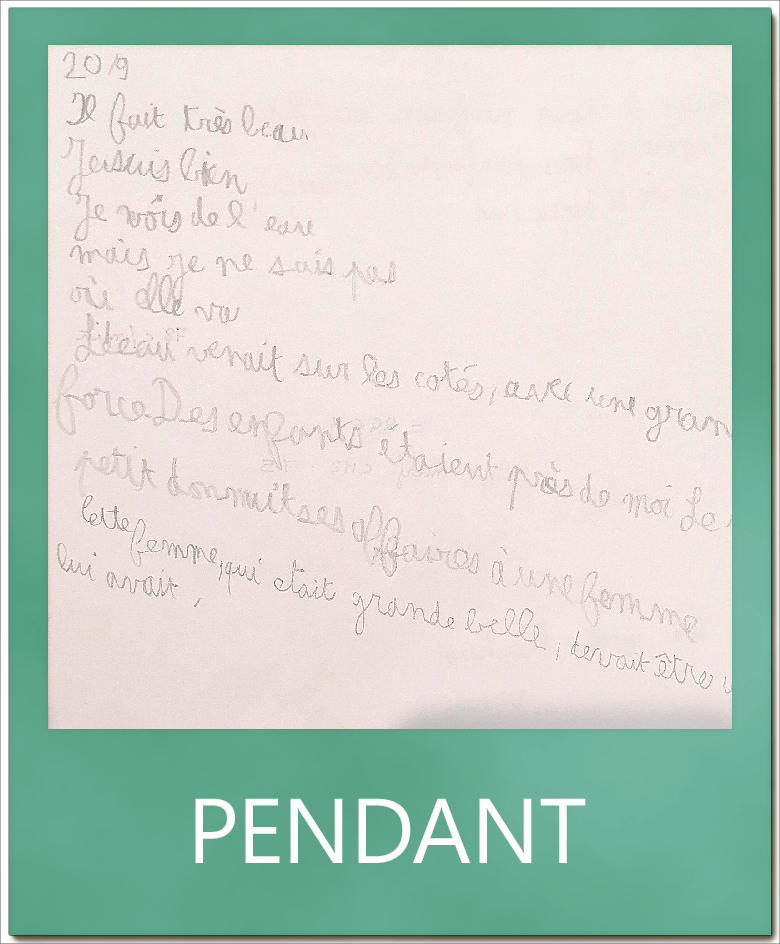 2019
Il fait très beau
Je suis bien
Je vois de l'eau
mais je ne sais pas
où elle va
L'eau venait sur les cotés, avec une gran
force Des enfants étaient près de moi Le
petit donnait ses affaires à une femme
Cette femme, qui était grande belle, devait être
lui avait,
PENDANT